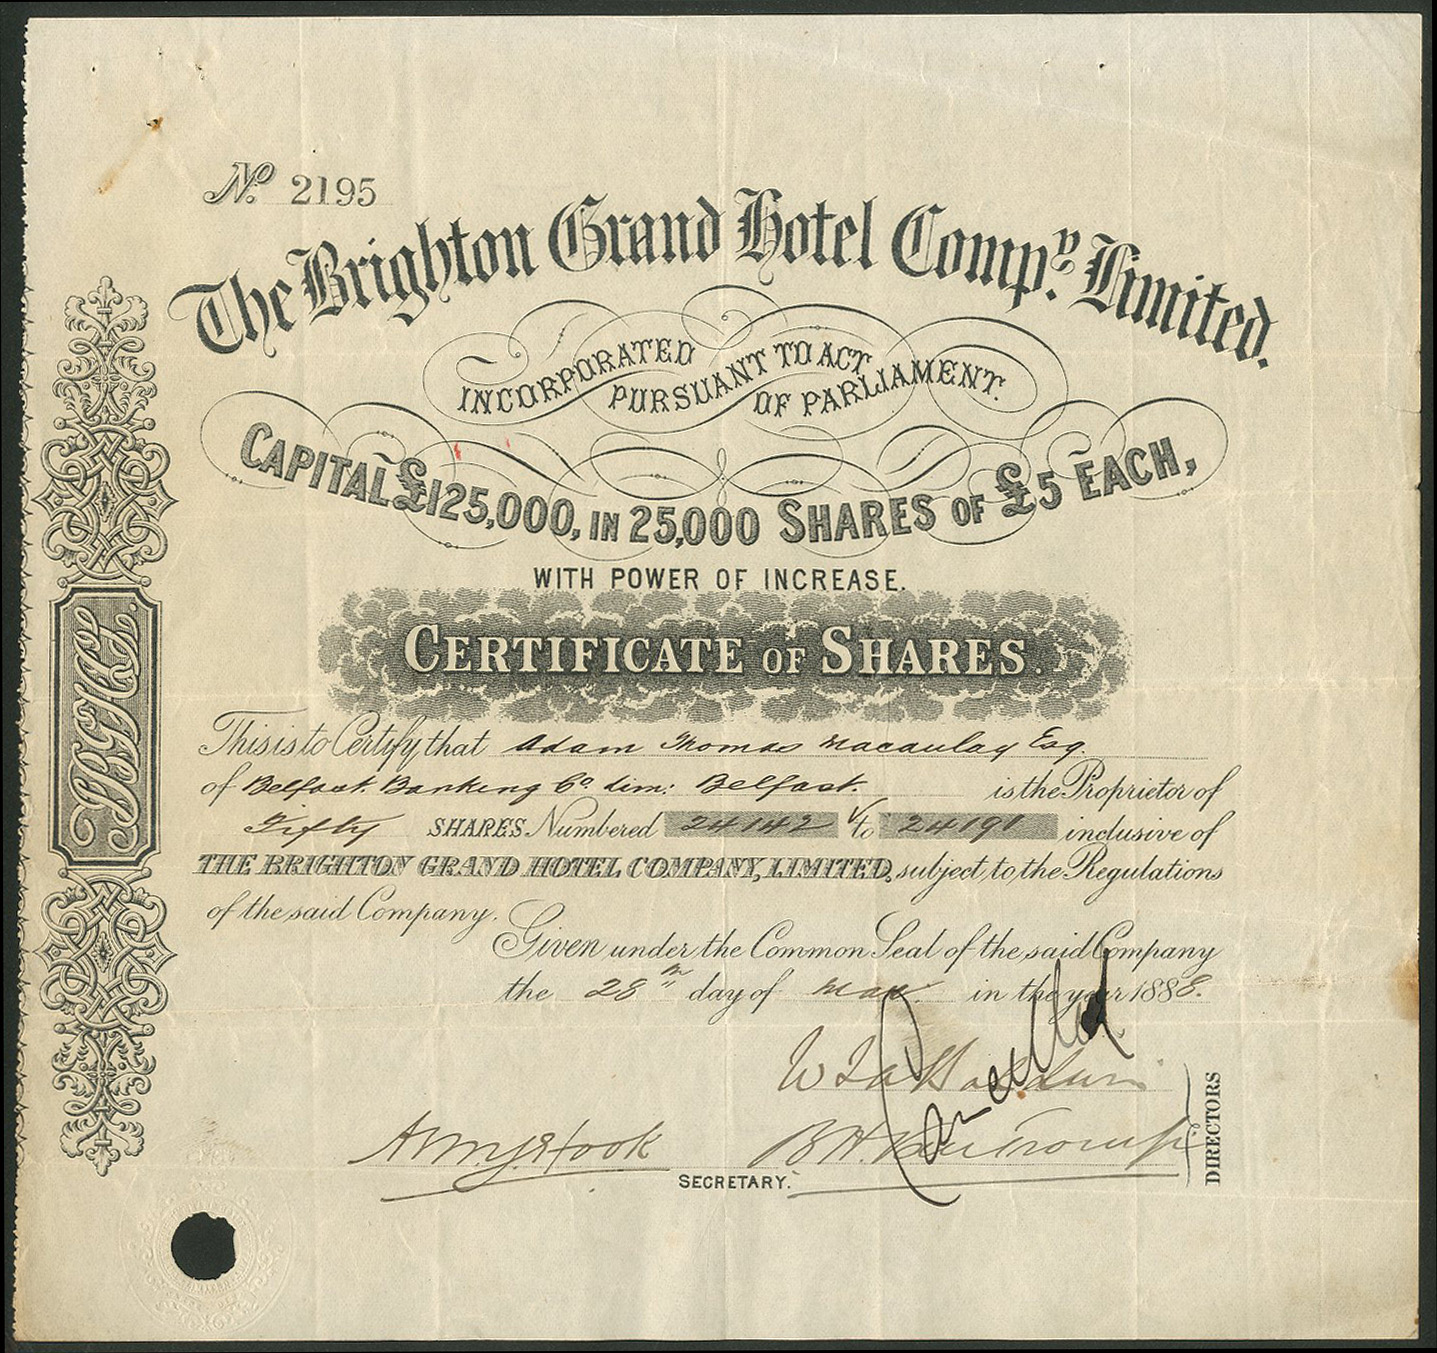 No. 2195
The Brighton Grand Hotel Compy. Limited.
INCORPORATED PURSUANT TO ACT OF PARLIAMENT.
CAPITAL £125,000, IN 25,000 SHARES OF £5 EACH,
WITH POWER OF INCREASE.
CERTIFICATE OF SHARES.
This is to Certify that Adam Thomas Macaulay Esq.
of Belfast Banking Co. Lim: Belfast. is the Proprietor of
Fifty SHARES Numbered 24142 to 24191 inclusive of
THE BRIGHTON GRAND HOTEL COMPANY, LIMITED, subject, to, the Regulations
of the said Company.
Given under the Common Seal of the said Company
the 28th day of May. in the year 1888.
Cancelled
DIRECTORS
SECRETARY.